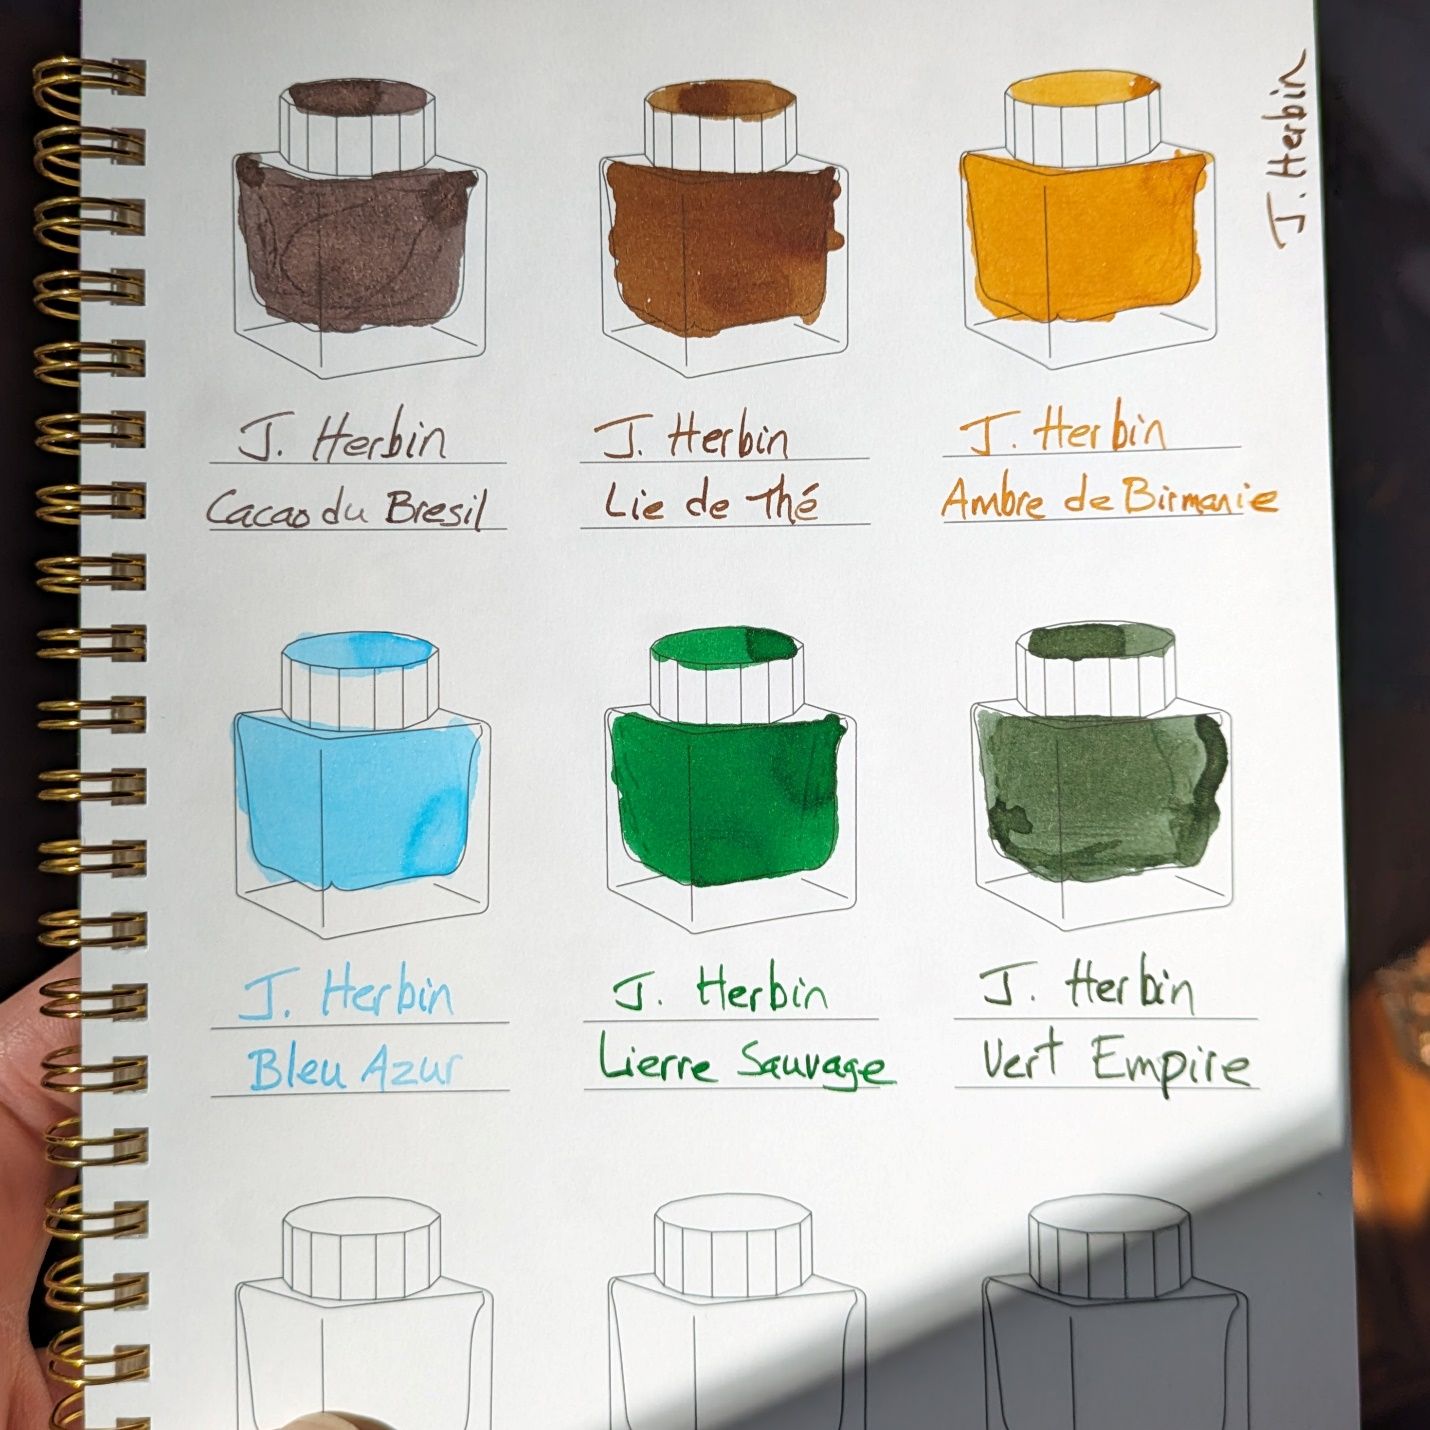 J. Herbin
J. Herbin
Cacao du Bresil
J. Herbin
Lie de Thé
J. Herbin
Ambre de Birmanie
J. Herbin
Bleu Azur
J. Herbin
Lierre Sauvage
J. Herbin
Vert Empire